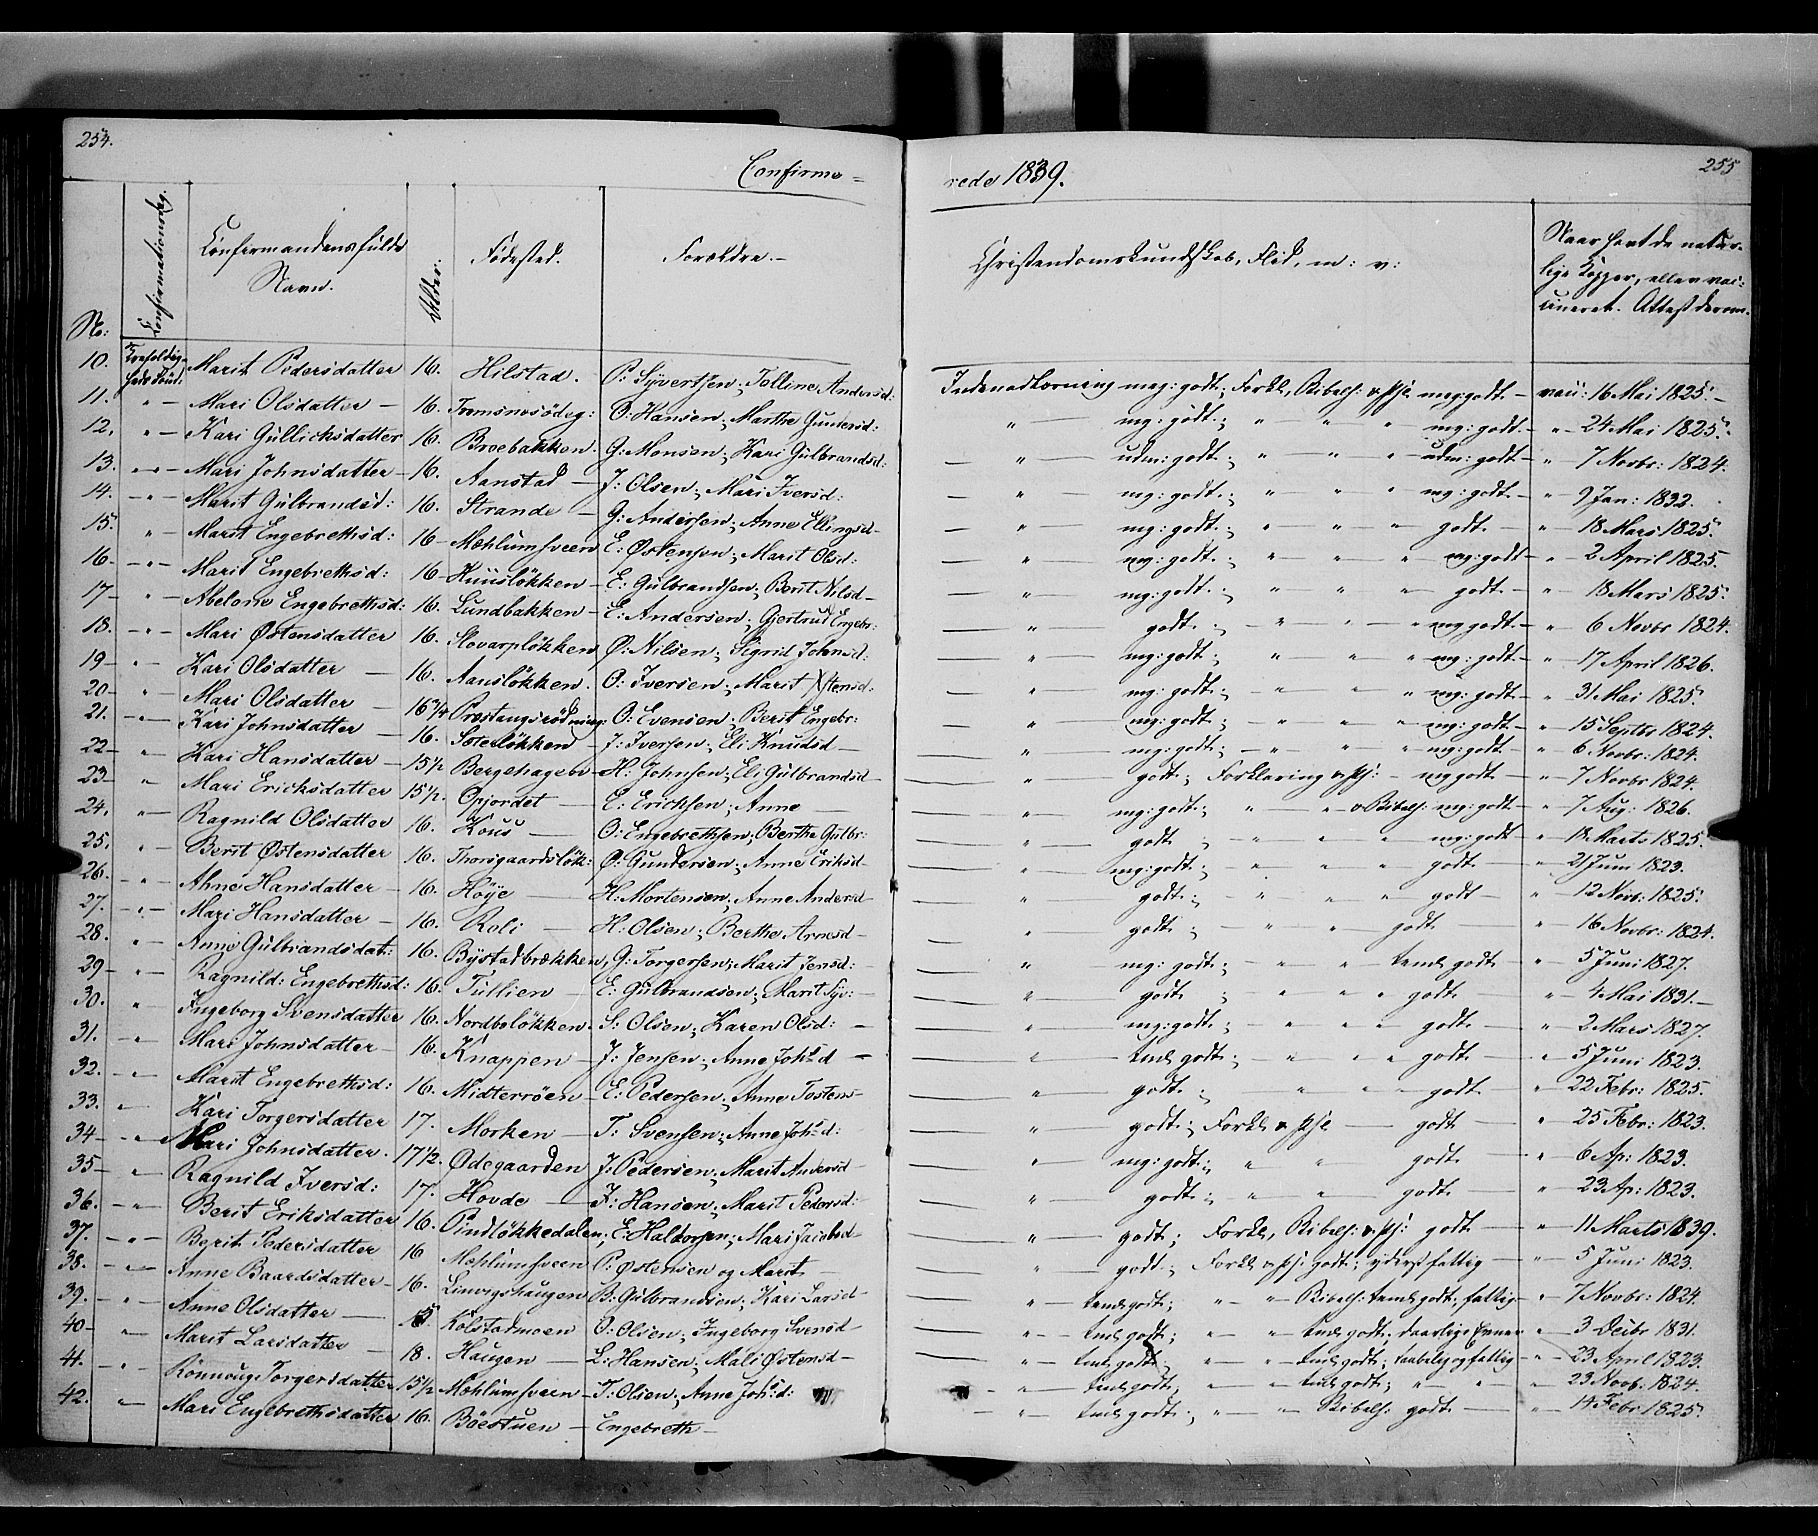 254.
Confirme=
No:
Confirmationsdag.
Confirmandens fulde Navn.
Alder:
Fødested.
Forældre.
10. Trefoldigheds Sønd: Marit Pedersdatter 16. Hilstad. P: Syvertsen; Folline Andersd:
11. " Mari Olsdatter 16. Tromsnesödeg: O: Hansen; Marthe Gundersd:
12. " Kari Gullichsdatter 16. Broebakken. G: Monsen; Kari Gulbrandsd:
13. " Mari Johnsdatter 16. Aanstad J: Olsen; Mari Iversd:
14. " Marit Gulbrandsd: 16. Strande G: Andersen; Anne Ellingsd
15. " Marit Engebrethsd: 16 Mæhlumsveen E: Østensen; Marit Olsd:
16 " Marit Engebrethsd: 16 Huuslökken E: Gulbrandsen; Berit Nilsd
17 " Abelone Engebrethsd: 16. Lundbakken E: Andersen; Gjertrud Engebr:
18. " Mari Østensdatter 16. Slovarplökken Ø: Nilsen; Sigrid Johnsd:
19 " Kari Olsdatter 16. Aanslökken. O: Iversen; Marit Østensd:
20 " Mari Olsdatter 16 1/4 Præstangsrödning: O: Evensen; Berit Engebr:
21. " Kari Johnsdatter 16. Soterlökken J: Iversen; Eli Knudsd
22 " Kari Hansdatter 15 1/2 Bergehagen H: Johnsen; Eli Gulbrandsd
23 " Mari Erichsdatter 15 1/2. Opjordet E: Erichsen; Anne
24. " Ragnild Olsdatter 16. Kous O: Engebrethsen; Berthe Gulbr:
25. " Berit Østensdatter 16. Thorsgaardslök: Ø: Gundersen; Anne Eriksd
26. " Ahne Hansdatter 16. Höye H: Mortensen; Anne Andersd
27. " Mari Hansdatter 16. Roli H: Olsen; Berthe Arnesd
28. " Anne Gulbrandsdat: 16. Bystadbrækken, G: Torgersen; Marit Jensd:
29 " Ragnild: Engebrethsd: 16. Tullien E: Gulbrandsen; Marit Syv:
30. " Ingeborg Svensdatter 16. Nordbølökken. S: Olsen; Karen Olsd:
31. " Mari Johnsdatter 16. Knappen J: Jensen; Anne Joh:d
32. " Marit Engebrethsd: 16. Midterröen E: Pedersen; Anne Tostens
33. " Kari Torgersdatter 17. Morken T: Svensen; Anne Joh:d:
34 " Mari Johnsdatter. 17 1/2. Ødegaarden J: Pedersen; Marit Andersd
35 " Ragnild Iversd: 17. Hovde I: Hansen; Marit Pedersd:
36. " Berit Eriksdatter 16. Pindlökkedalen; E: Haldorsen; Mari Jacobsd
37. " Berit Pedersdatter 16 Mæhlumsveen P: Østensen og Marit
38. " Anne Baardsdatter 16. Linvigshaugen B: Gulbrandsen; Kari Larsd
39. " Anne Olsdatter Kolstadmoen O: Olsen; Ingeborg Svensd
40 " Marit Larsdatter 18. Haugen L: Hansen; Mali Østensd
41. " Rönnoug Torgersdatter 15 1/2 Mæhlumsveen T: Olsen; Anne Joh:d:
42. " Mari Engebrethsdatter 16. Böestuen Engebreth
rede 1839.
255
Christendomskundskab, Flid, m: v:
Naar havt de naturlige Kopper, eller vaccineret. Attest derom.
Indenadlæsning meg: godt; Forkl, Bibelh: meg: godt vacc: 16 Mai 1825.
" mg: godt; " " " mg: godt " 24 Mai 1825.
" udm: godt; " " " udm: godt " 7 Novbr: 1824.
" mg: godt; " " " mg: godt " 9 Jan: 1832.
" mg: godt; " " " godt " 18 Mars 1825.
" mg: godt; " " " mg: godt " 2 April 1825.
" mg: godt; " " " godt " 18 Mars 1825.
" godt; " " " mg godt " 6 Novbr 1824.
" mg: godt; " " " mg: godt " 17 April 1826.
" mg: godt; " " " mg: godt " 31 Mai 1825.
" mg: godt; " " " mg: godt " 15 Septbr 1824.
" mg: godt; " " " mg: godt " 6 Novbr: 1824.
" godt; Forklaring mg godt " 7 Novbr 1824.
" mg: godt; " " o Bibelh: mg: godt " 7 Aug: 1826.
" godt " " " mg: godt " 18 Marts 1825.
" mg: godt; " " " godt " 21 Juni 1823.
" godt; " " " godt " 12 Novb: 1825.
" godt; " " " godt " 16 Novbr: 1824.
" mg: godt; " " temel godt " 5 Juni 1827.
" godt; " " " godt " 4 Mai 1831.
" mg: godt; " " " godt " 2 Mars 1827.
" temel godt; " " " godt " 5 Juni 1823.
" godt; " " " godt " 22 Febr: 1825.
" godt; Forkl godt " 25 Febr: 1823.
" mg: godt; " " godt " 6 Ap: 1823.
" godt; " " godt " 23 Ap: 1823.
" godt; Forkl, Bibelh: godt " 11 Marts 1839.
" godt; Forkl godt; yderst fattig " 5 Juni 1823.
" temel godt; " " Bibelh: temel godt; fattig " 7 Novbr: 1824.
" temel godt; " " temel godt; daarlige Evner " 3 Decbr 1831.
" temel godt; " " temel godt; fattig " 23 April 1823.
" temel godt; " " temel godt; " " " 23 Novb. 1824.
" temel godt; " " Bibelh: godt " 14 Febr: 1825.